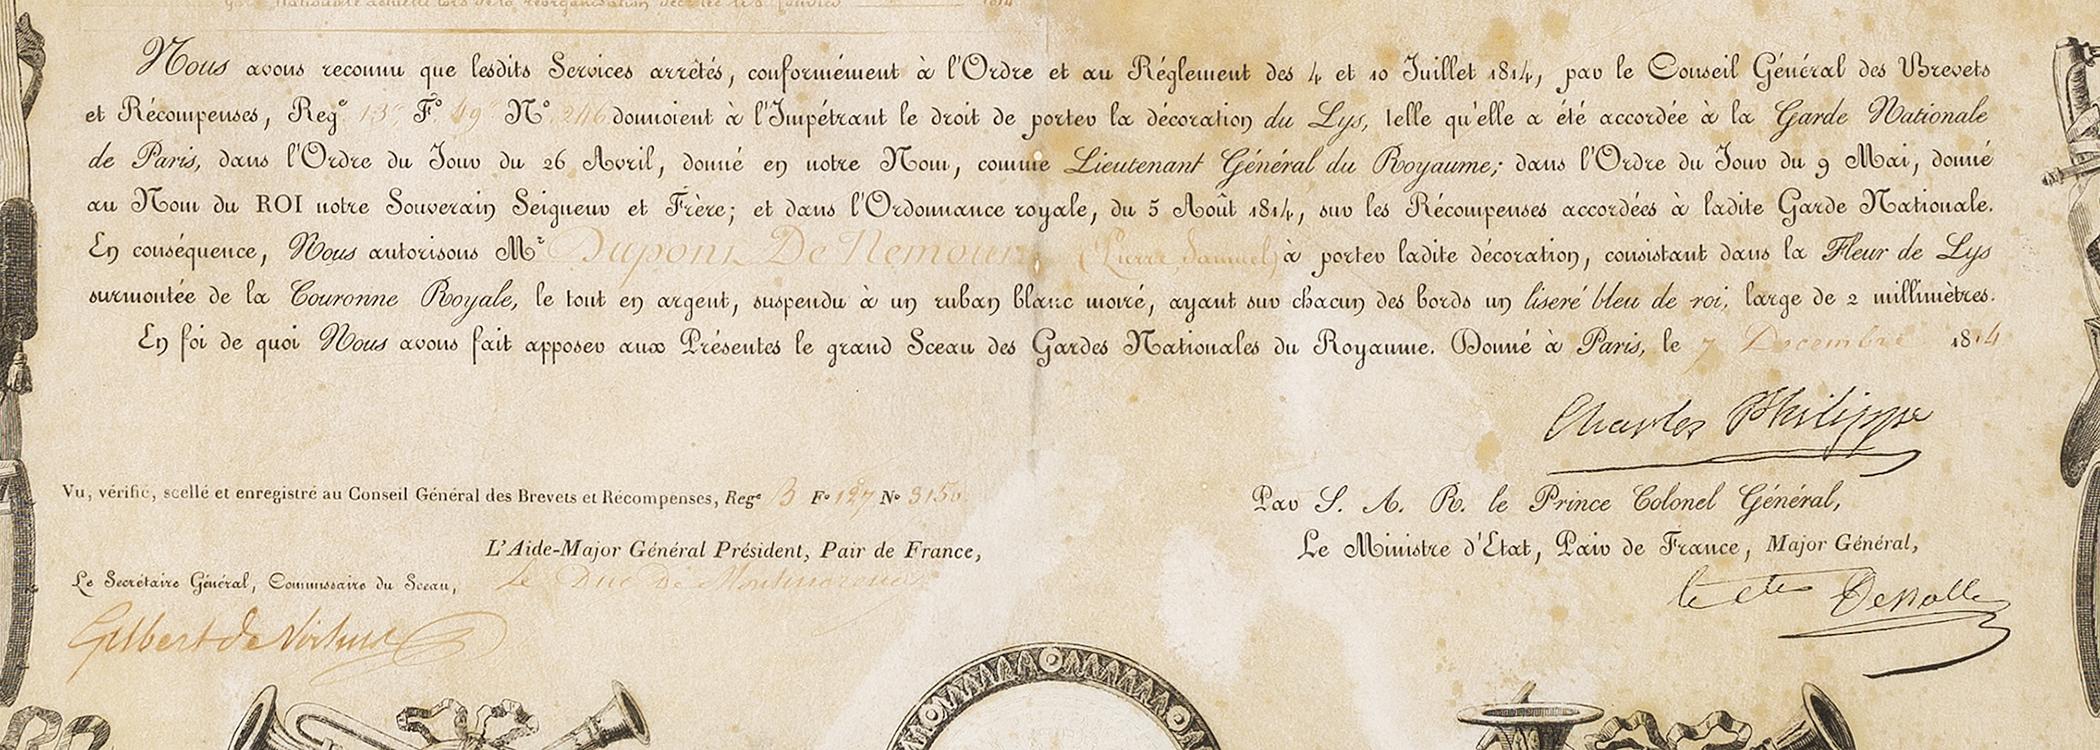 Garde Nationale actuelle lors de la réorganisation décrétée le 8 Janvier 1814
Nous avons reconnu que lesdits Services arrêtés, conformément à l'Ordre et au Réglement des 4 et 10 Juillet 1814, par le Conseil Général des Brevets
et Récompenses, Reg.e 13e F.o 49e N.o 246 donnoient à l'Impétrant le droit de porter la décoration du Lys, telle qu'elle a été accordée à la Garde Nationale
de Paris, dans l'Ordre du Jour du 26 Avril, donné en notre Nom, comme Lieutenant Général du Royaume; dans l'Ordre du Jour du 9 Mai, donné
au Nom du ROI notre Souverain Seigneur et Frère; et dans l'Ordonnance royale, du 5 Août 1814, sur les Récompenses accordées à ladite Garde Nationale.
En conséquence, Nous autorisons M.r Dupont De Nemours (Pierre Samuel) à porter ladite décoration, consistant dans la Fleur de Lys
surmontée de la Couronne Royale, le tout en argent, suspendu à un ruban blanc moiré, ayant sur chacun des bords un liseré bleu de roi, large de 2 millimètres.
En foi de quoi Nous avons fait apposer aux Présentes le grand Sceau des Gardes Nationales du Royaume. Donné à Paris, le 7 Decembre 1814
Charles Philippe
Vu, vérifié, scellé et enregistré au Conseil Général des Brevets et Récompenses, Reg.e B F.o 127 N.o 3150
Par S. A. R. le Prince Colonel Général,
L'Aide-Major Général Président, Pair de France,
Le Ministre d'Etat, Pair de France, Major Général,
Le Secrétaire Général, Commissaire du Sceau,
Le Duc De Montmorency
le cte Dessolle
Gilbert de Voisins